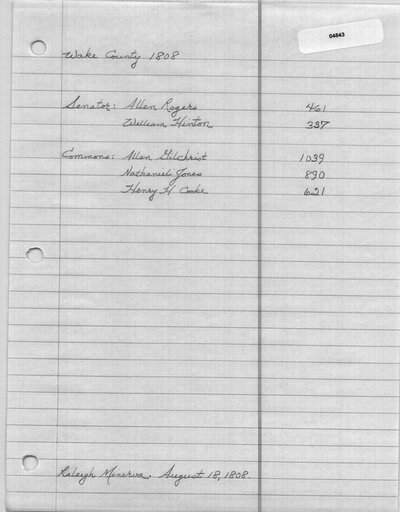 04843
Wake County 1808
Senator: Allen Rogers 461
William Hinton 337
Commons: Allen Gilchrist 1039
Nathaniel Jones 890
Henry H Cooke 621
Raleigh Minerva. August 18, 1808.